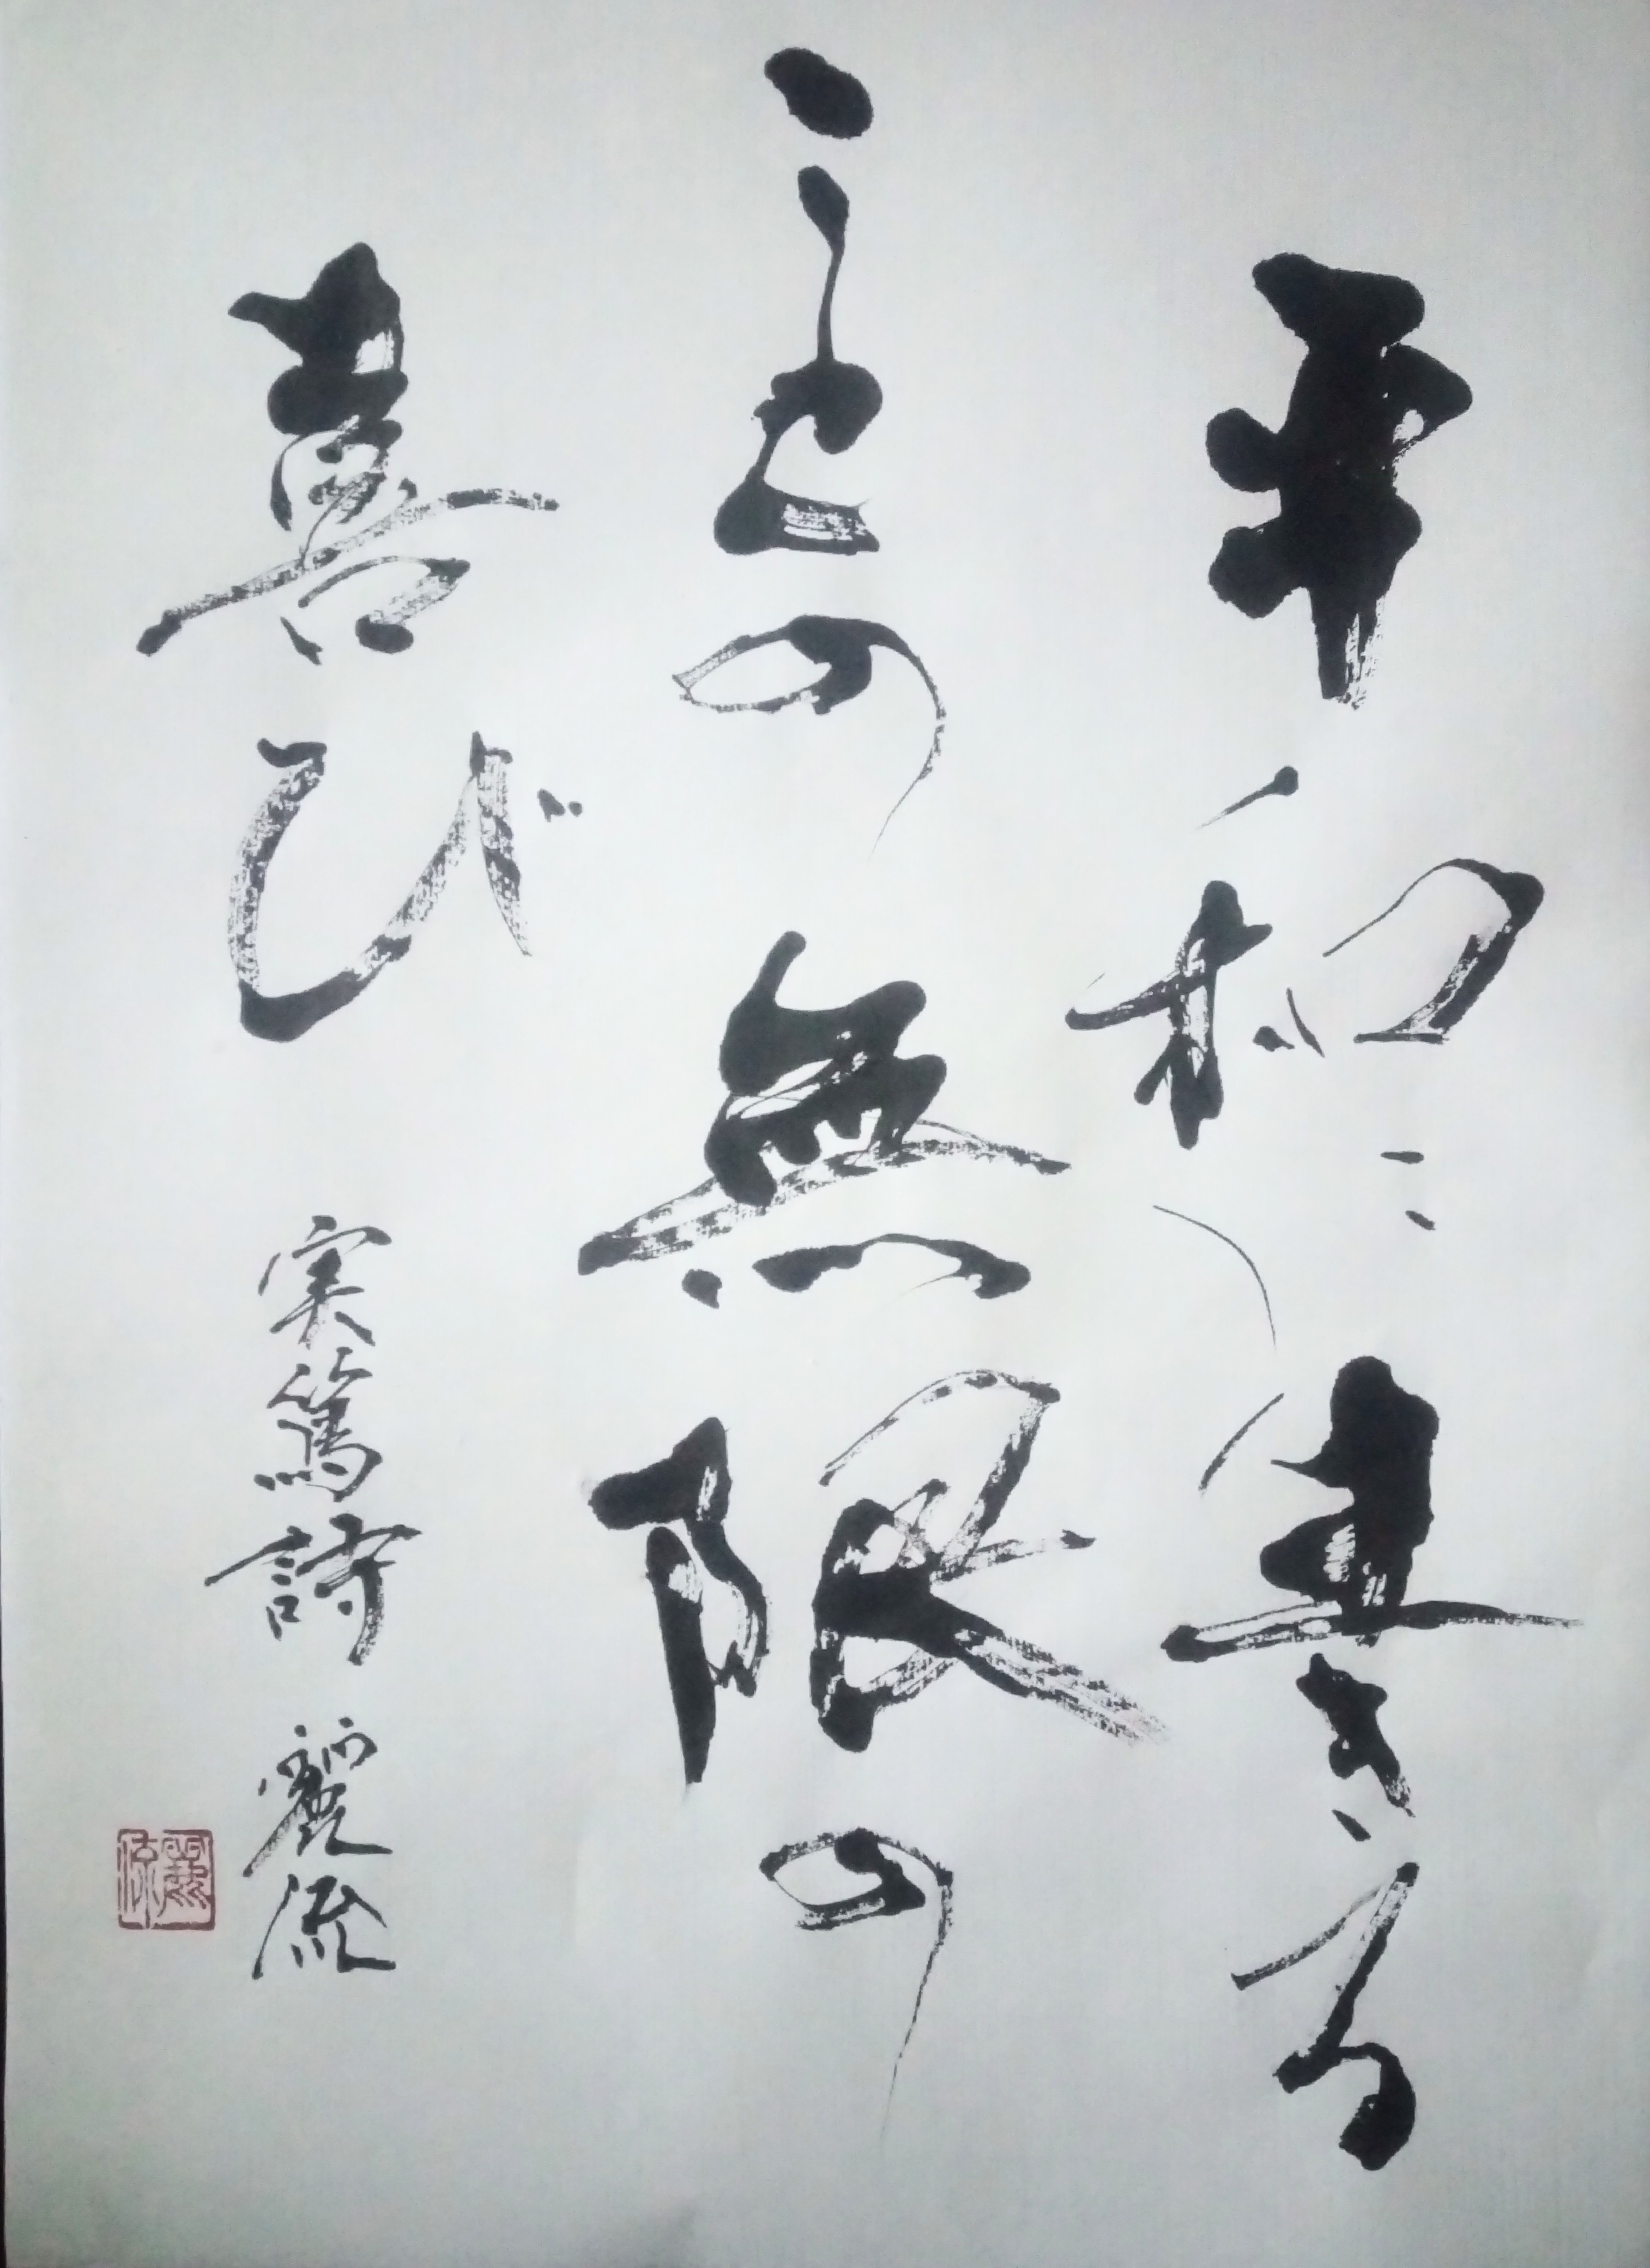 平和に生きる
ことの無限の
喜び
実篤詩 麗流
麗流